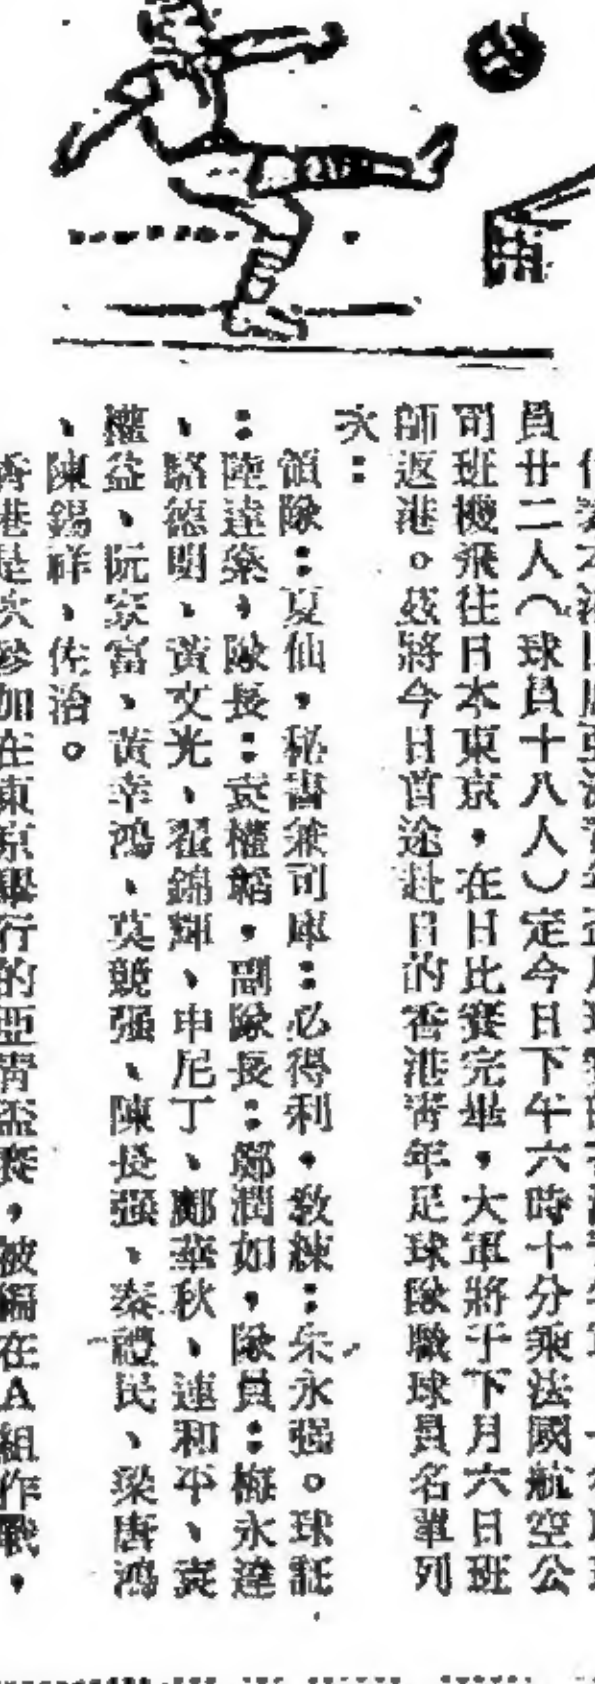 員廿二人（球員十八人）定今日下午六時十分乘法國航空公
司班機飛往日本東京，在日比賽完畢，大軍將于下月六日班
師返港。茲將今日首途赴日的香港靑年足球隊職球員名單列
次：
領隊：夏仙，秘書兼司庫：必得利，敎練：朱永强。球証
：陸達榮，隊長：袁權韜，副隊長：鄭潤如，隊員：梅永達
、駱德明、黃文光、翟錦輝、申尼丁、鄺華秋、連和平、袁
權益、阮家富、黃幸鴻、莫競强、陳長强、秦禮民、梁唐鴻
、陳錫祥、佐治。
香港是次參加在東京舉行的亞靑盃賽，被編在A組作戰，